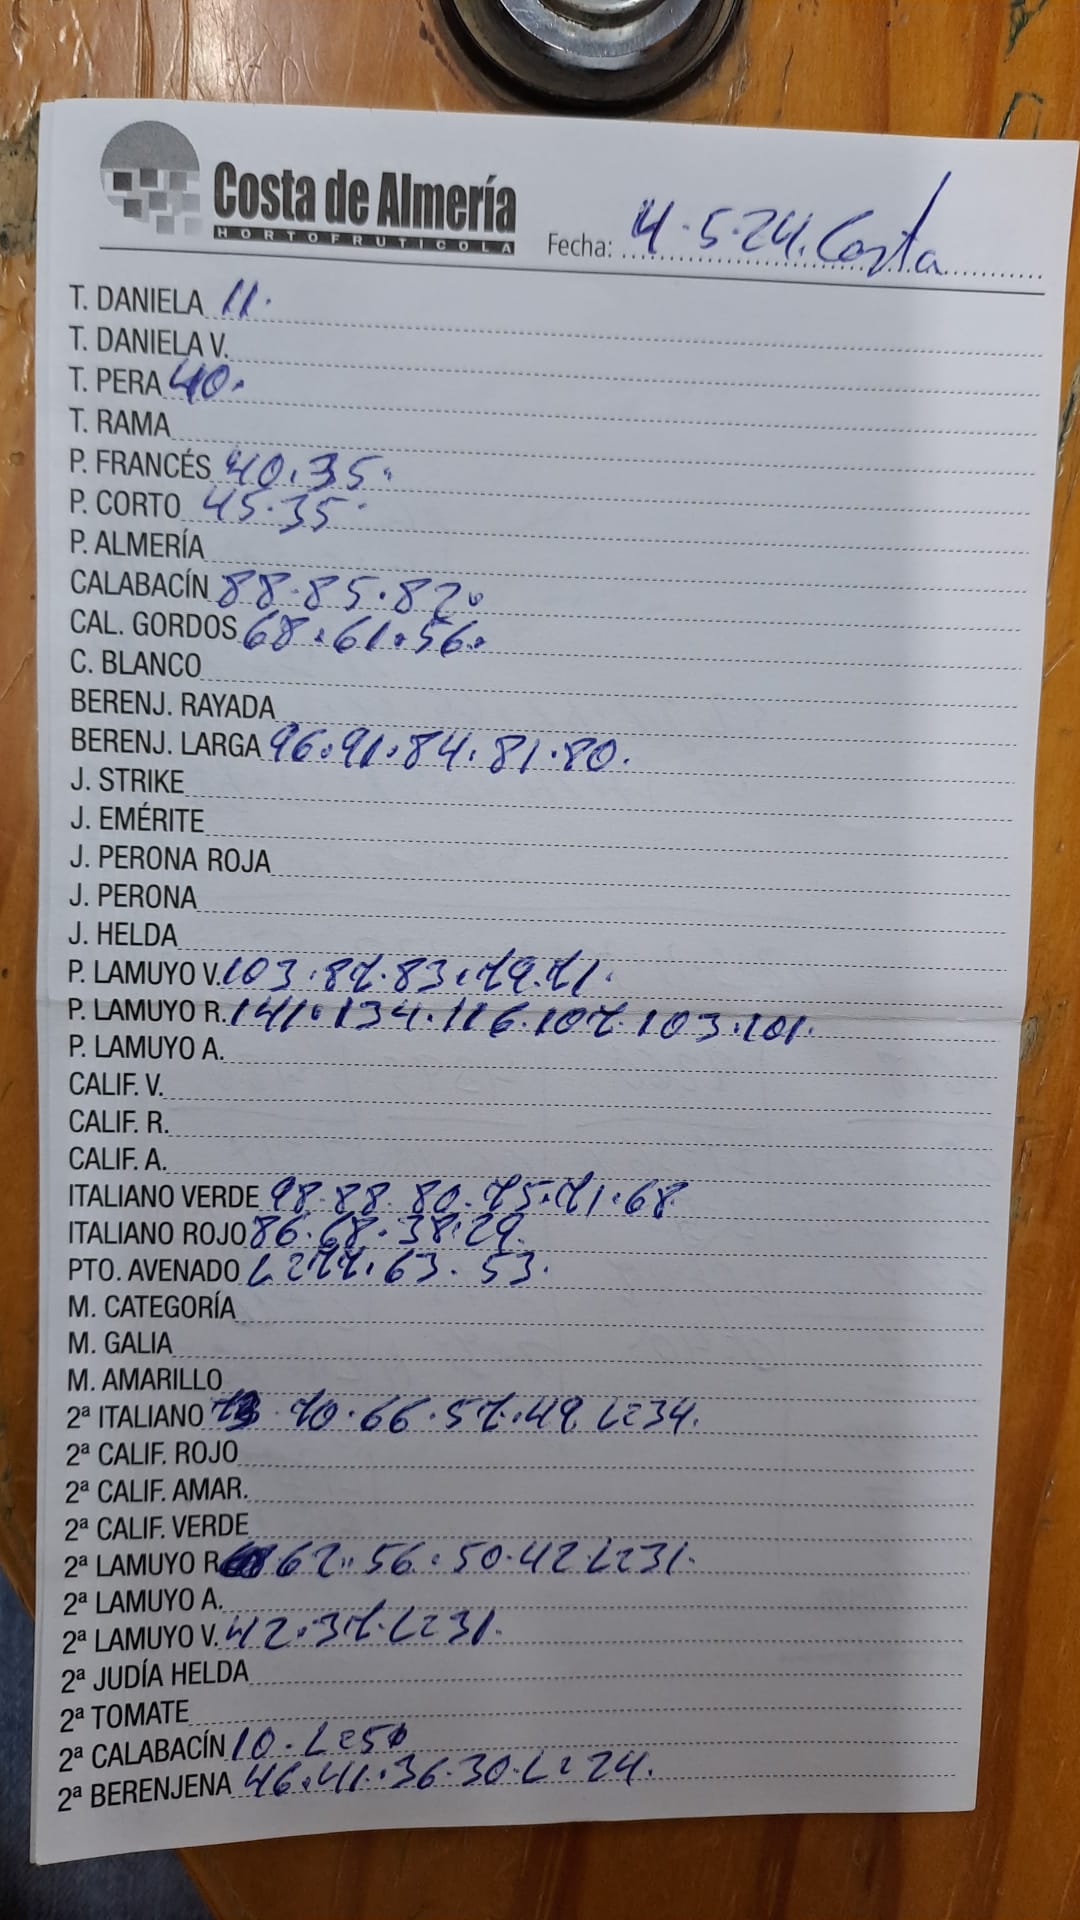 Costa de Almería
HORTOFRUTICOLA
Fecha: 4.5.24. Costa
T. DANIELA 11.
T. DANIELA V.
T. PERA 40.
T. RAMA
P. FRANCÉS 40.35.
P. CORTO 45.35.
P. ALMERÍA
CALABACÍN 88.85.82.
CAL. GORDOS 68.61.56.
C. BLANCO
BERENJ. RAYADA
BERENJ. LARGA 96.91.84.81.80.
J. STRIKE
J. EMÉRITE
J. PERONA ROJA
J. PERONA
J. HELDA
P. LAMUYO V. 103.87.83.79.71.
P. LAMUYO R. 141.134.116.107.103.101.
P. LAMUYO A.
CALIF. V.
CALIF. R.
CALIF. A.
ITALIANO VERDE 98.88.80.75.71.68
ITALIANO ROJO 86.68.38.29.
PTO. AVENADO L=77.63.53.
M. CATEGORÍA
M. GALIA
M. AMARILLO
2ª ITALIANO 70.66.57.49 L=34.
2ª CALIF. ROJO
2ª CALIF. AMAR.
2ª CALIF. VERDE
2ª LAMUYO R 62.56.50.42 L=31.
2ª LAMUYO A.
2ª LAMUYO V. 42.37.L=31.
2ª JUDÍA HELDA
2ª TOMATE
2ª CALABACÍN 10.L=50
2ª BERENJENA 46.41.36.30.L=24.